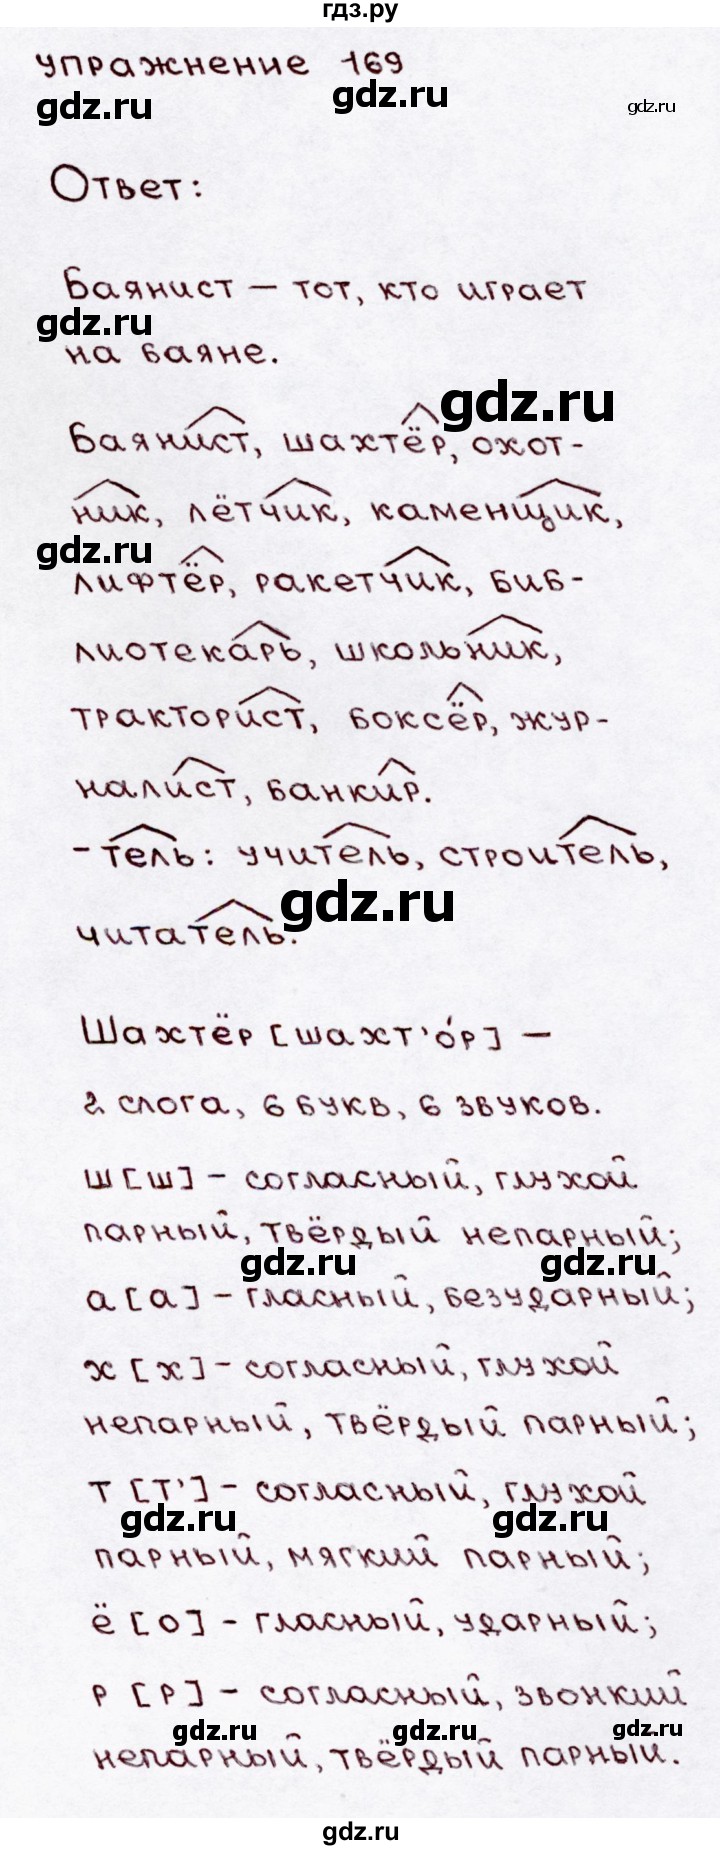 гдз.ру
упражнение 169
gdz.ru gdz.ru gdz.ru
Ответ:
Баянист – тот, кто играет
gdz.ru
на баяне.
gdz.ru
Баянист, шахтёр, охот-
ник, лётчик, каменщик,
gdz.ru
лифтёр, ракетчик, биб-
лиотекарь, школьник,
тракторист, боксёр, жур-
налист, банкир.
-тель: учитель, строитель,
gdz.ru
читатель.
Шахтёр [шахт'о́р] –
2 слога, 6 букв, 6 звуков.
ш [ш] – согласный, глухой
парный, твёрдый непарный;
gdz.ru gdz.ru
а [а] – гласный, безударный;
х [х] – согласный, глухой
непарный, твёрдый парный;
т [т'] – согласный, глухой
gdz.ru gdz.ru
парный, мягкий парный;
ё [о] – гласный, ударный;
р [р] – согласный, звонкий
gdz.ru gdz.ru gdz.ru
непарный, твёрдый парный.
gdz.ru